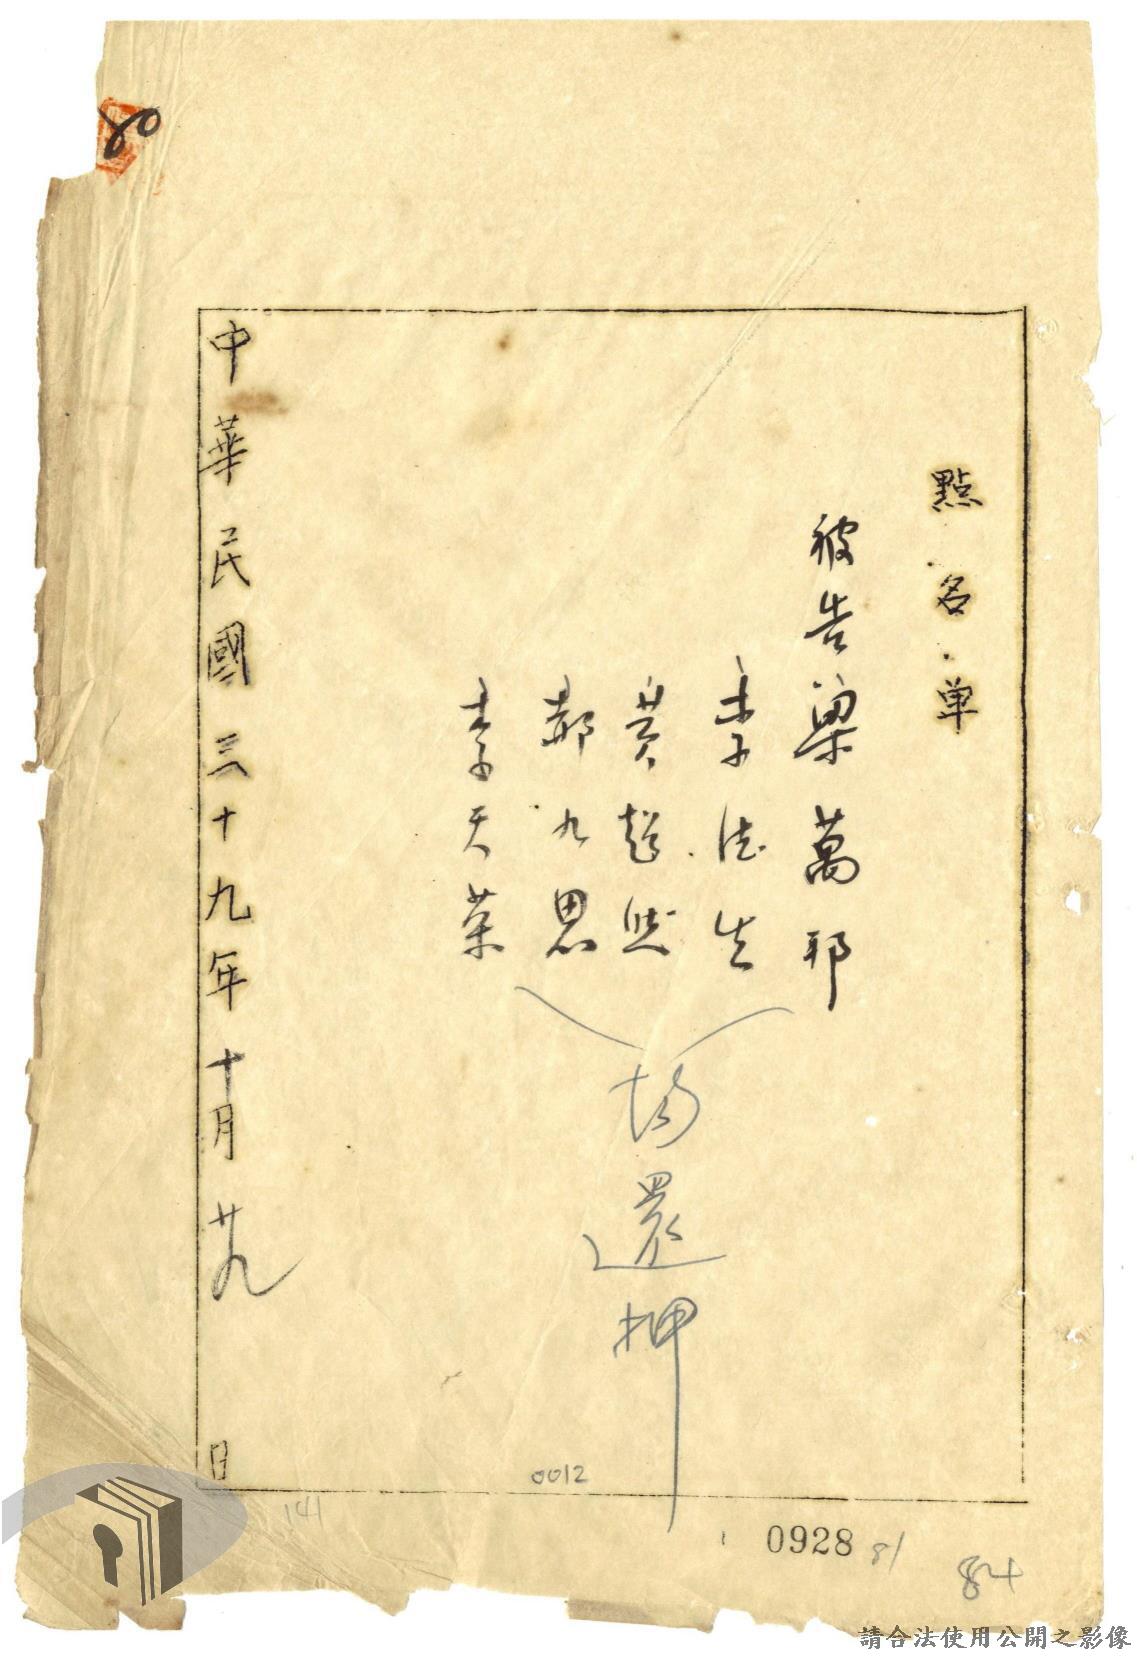 點名單
被告梁萬邦
李法生
黃超然
郝九思
李天業
均還押
中華民國三十九年十月廿九日
0012
141
0928
81
84
請合法使用公開之影像